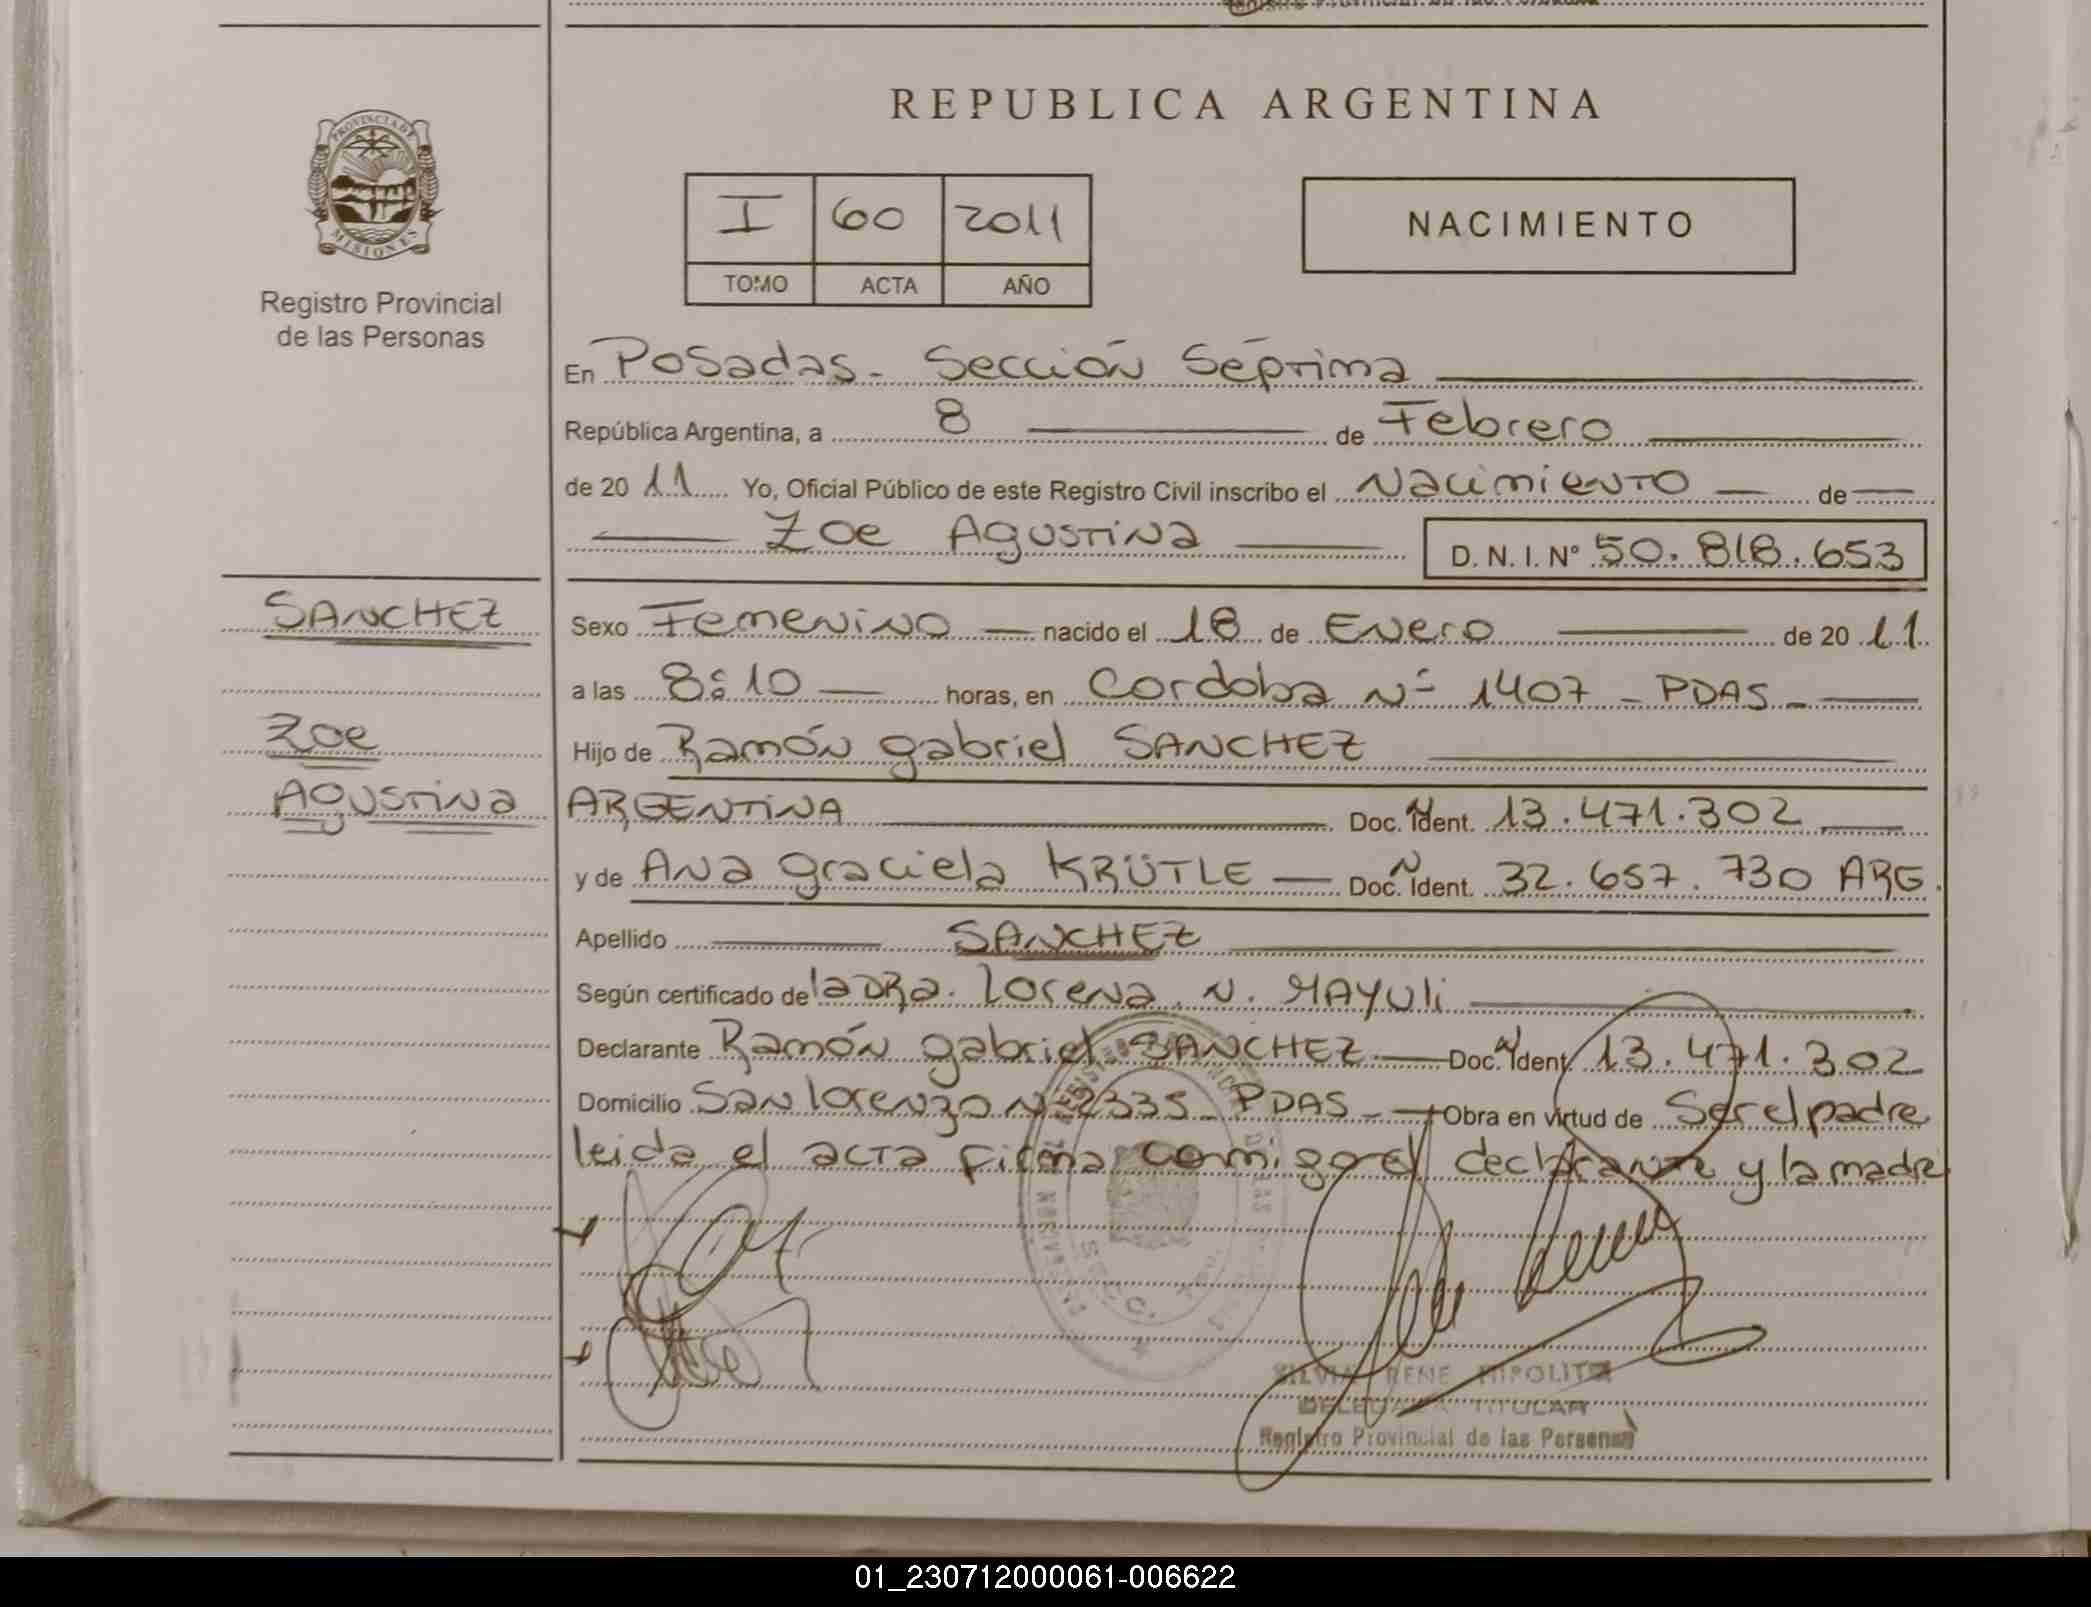 REPUBLICA ARGENTINA
PROVINCIA DE
MISIONES
Registro Provincial
de las Personas
I 60 2011
TOMO ACTA AÑO
NACIMIENTO
En Posadas - Sección Séptima
República Argentina, a 8 de Febrero
de 2011 Yo, Oficial Público de este Registro Civil inscribo el Nacimiento de
Zoe Agustina D. N. I. Nº 50.818.653
SANCHEZ
Zoe
Agustina
Sexo Femenino nacido el 18 de Enero de 2011
a las 8:10 horas, en Cordoba Nº 1407 - PDAS -
Hijo de Ramón gabriel SANCHEZ
ARGENTINA Doc. N Ident. 13.471.302
y de Ana graciela KRÜTLE Doc. N Ident. 32.657.730 ARG.
Apellido SANCHEZ
Según certificado de la DRa. Lorena N. MAYULi
Declarante Ramón gabriel SANCHEZ Doc. N Ident. 13.471.302
Domicilio San lorenzo Nº 2335 - PDAS - Obra en virtud de Ser el padre
leida el acta firma conmigo el declarante y la madre
SILVIA RENE HIPOLITO
DELEGADA TITULAR
Registro Provincial de las Personas
01_230712000061-006622